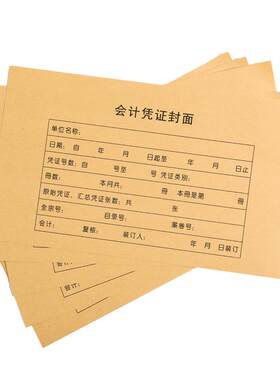 会计凭证封面
单位名称：
日期：自 年 月 日起至 年 月 日止
凭证号数：自 号至 号 凭证类别：
册数： 本月共： 册 本册是第 册
原始凭证、汇总凭证张数：共 张
全宗号： 目录号： 案卷号：
会计： 复核： 装订人： 年 月 日装订
会计：